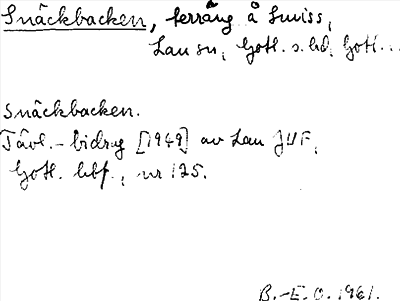 Snäckbacken, terräng å Smiss,
Lau sn, Gotl. s. hd, Gotl...
Snäckbacken.
Tävl.-bidrag [1949] av Lau JUF,
Gotl. hbf., nr 125.
B.-E. O. 1961.